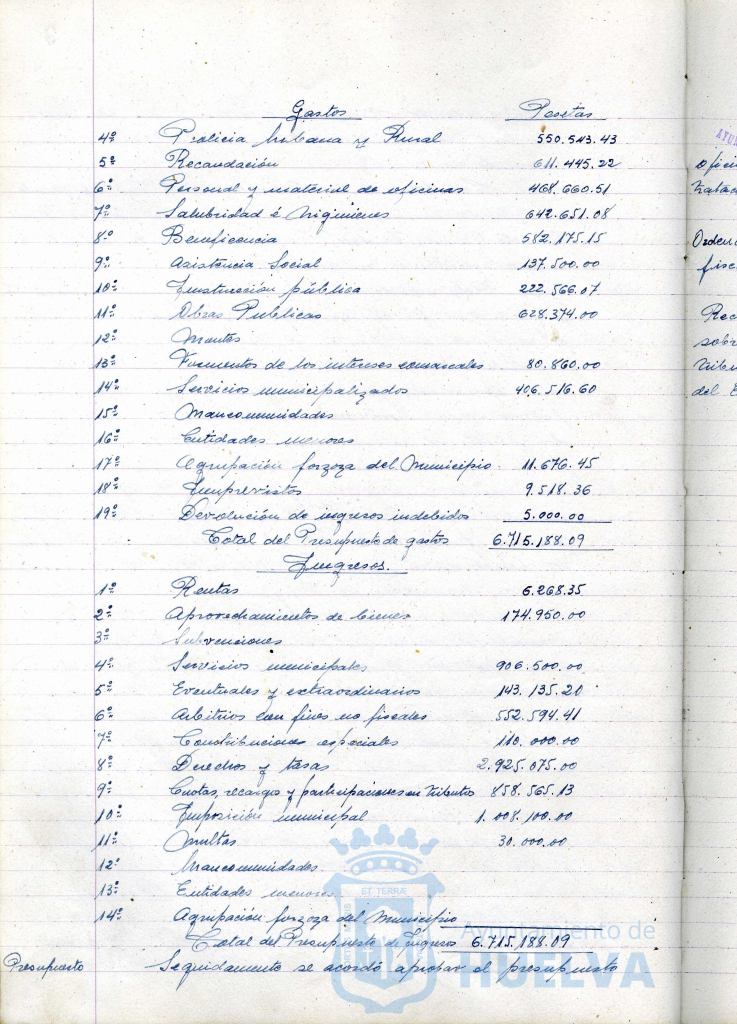 Gastos Pesetas
4º Policia Urbana y Rural 550.543.43
5º Recaudación 611.445.22
6º Personal y material de oficinas 468.660.51
7º Salubridad é higienes 642.651.08
8º Beneficencia 582.175.15
9º Asistencia Social 137.500.00
10º Instrucción pública 222.566.07
11º Obras Publicas 628.374.00
12º Montes
13º Fomentos de los intereses comarcales 80.860.00
14º Servicios municipalizados 406.516.60
15º Mancomunidades
16º Entidades menores
17º Agrupación forzoza del Municipio 11.676.45
18º Imprevistos 9.518.36
19º Devolución de ingresos indebidos 5.000.00
Total del Presupuesto de gastos 6.715.188.09
Ingresos.
1º Rentas 6.268.35
2º Aprovechamientos de bienes 174.950.00
3º Subvenciones
4º Servicios municipales 906.500.00
5º Eventuales y extraordinarios 143.135.20
6º Arbitrios con fines no fiscales 552.594.41
7º Contribuciones especiales 110.000.00
8º Derechos y tasas 2.925.075.00
9º Cuotas, recargos y participaciones en tributos 858.565.13
10º Imposición municipal 1.008.100.00
11º Multas 30.000.00
12º Mancomunidades
13º Entidades menores
14º Agrupación forzoza del Municipio
Total del Presupuesto de Ingresos 6.715.188.09
Presupuesto Seguidamente se acordó aprobar el presupuesto
Ayuntamiento de
HUELVA
ET TERRÆ